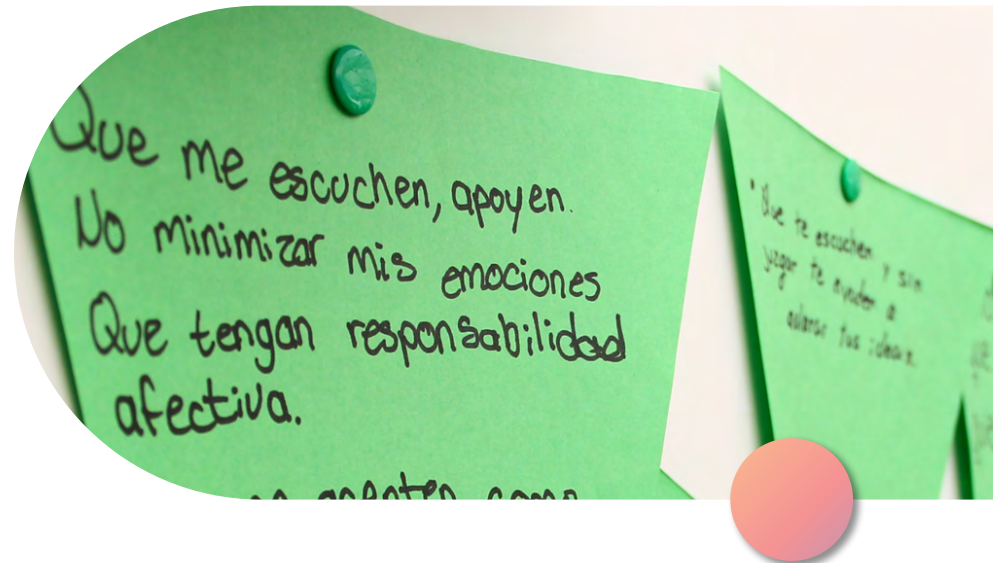 Que me escuchen, apoyen.
No minimizar mis emociones
Que tengan responsabilidad
afectiva.
como
• Que te escuchen y sin
juzgar te ayuden a
aclarar tus ideas.